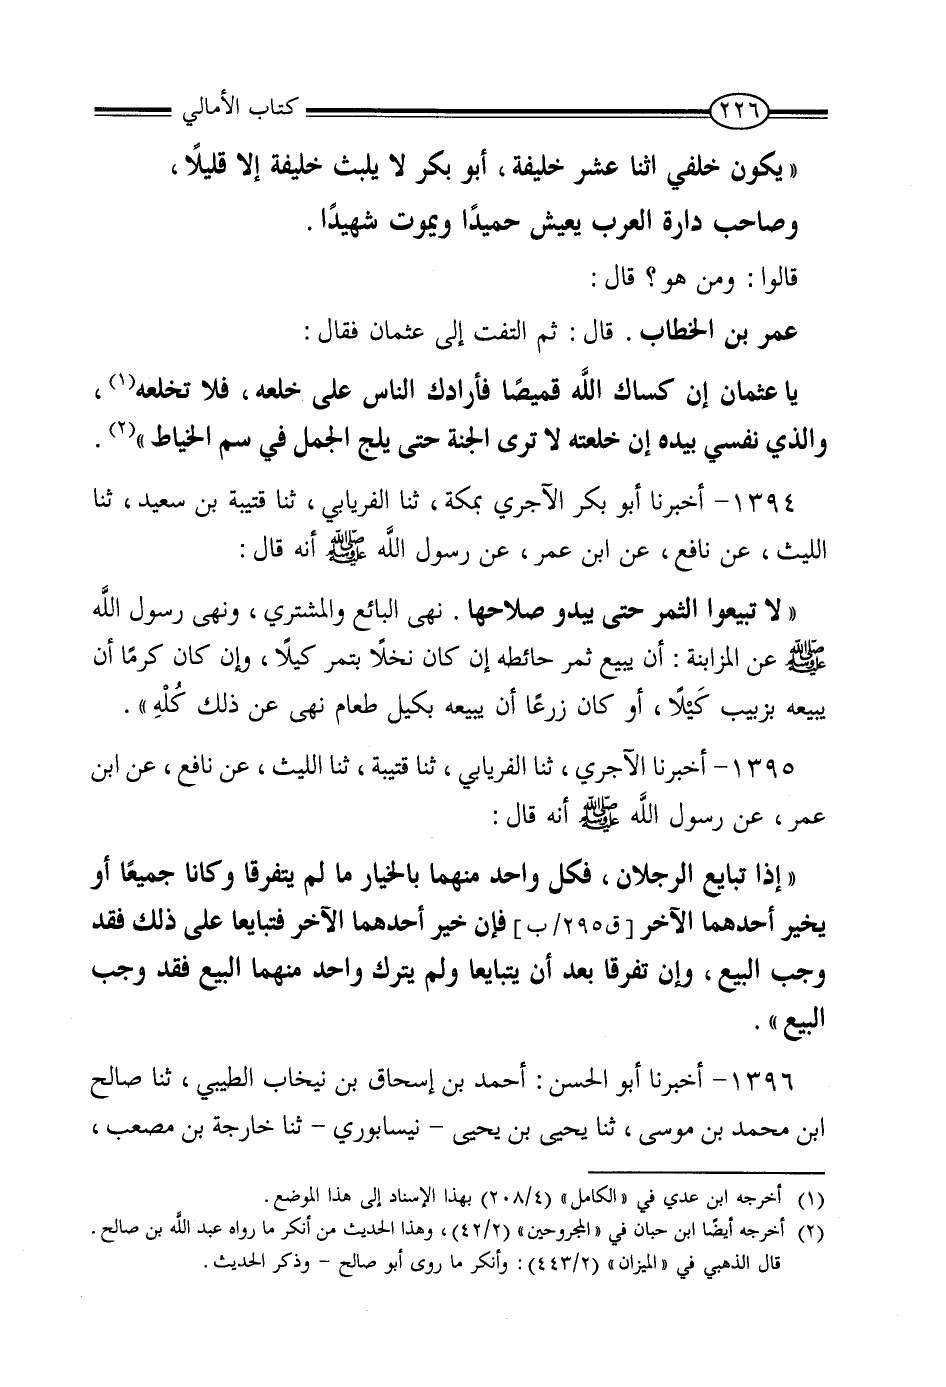 ٢٢٦ كتاب الأمالي
« يكون خلفي اثنا عشر خليفة ، أبو بكر لا يلبث خليفة إلا قليلًا ،
وصاحب دارة العرب يعيش حميدًا ويموت شهيدًا .
قالوا : ومن هو ؟ قال :
عمر بن الخطاب . قال : ثم التفت إلى عثمان فقال :
يا عثمان إن كساك اللَّه قميصًا فأرادك الناس على خلعه ، فلا تخلعه(١) ،
والذي نفسي بيده إن خلعته لا ترى الجنة حتى يلج الجمل في سم الخياط »(٢) .
١٣٩٤- أخبرنا أبو بكر الآجري بمكة ، ثنا الفريابي ، ثنا قتيبة بن سعيد ، ثنا
الليث ، عن نافع ، عن ابن عمر ، عن رسول اللَّه ﷺ أنه قال :
« لا تبيعوا الثمر حتى يبدو صلاحها . نهى البائع والمشتري ، ونهى رسول اللَّه
ﷺ عن المزابنة : أن يبيع ثمر حائطه إن كان نخلًا بتمر كيلًا ، وإن كان كرمًا أن
يبيعه بزبيب كَيْلًا ، أو كان زرعًا أن يبيعه بكيل طعام نهى عن ذلك كُلْهِ » .
١٣٩٥- أخبرنا الآجري ، ثنا الفريابي ، ثنا قتيبة ، ثنا الليث ، عن نافع ، عن ابن
عمر ، عن رسول اللَّه ﷺ أنه قال :
« إذا تبايع الرجلان ، فكل واحد منهما بالخيار ما لم يتفرقا وكانا جميعًا أو
يخير أحدهما الآخر [ ق٢٩٥/ ب ] فإن خير أحدهما الآخر فتبايعا على ذلك فقد
وجب البيع ، وإن تفرقا بعد أن يتبايعا ولم يترك واحد منهما البيع فقد وجب
البيع » .
١٣٩٦- أخبرنا أبو الحسن : أحمد بن إسحاق بن نيخاب الطيبي ، ثنا صالح
ابن محمد بن موسى ، ثنا يحيى بن يحيى - نيسابوري - ثنا خارجة بن مصعب ،
(١) أخرجه ابن عدي في «الكامل» (٢٠٨/٤) بهذا الإسناد إلى هذا الموضع .
(٢) أخرجه أيضًا ابن حبان في «المجروحين» (٤٢/٢) ، وهذا الحديث من أنكر ما رواه عبد اللَّه بن صالح .
قال الذهبي في «الميزان» (٤٤٣/٢) : وأنكر ما روى أبو صالح - وذكر الحديث .